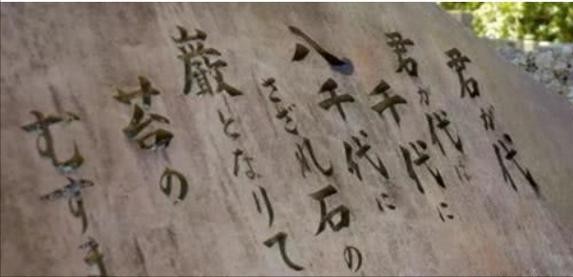 君が代
君が代に
千代に
八千代に
さざれ石の
巌となりて
苔の
むすま